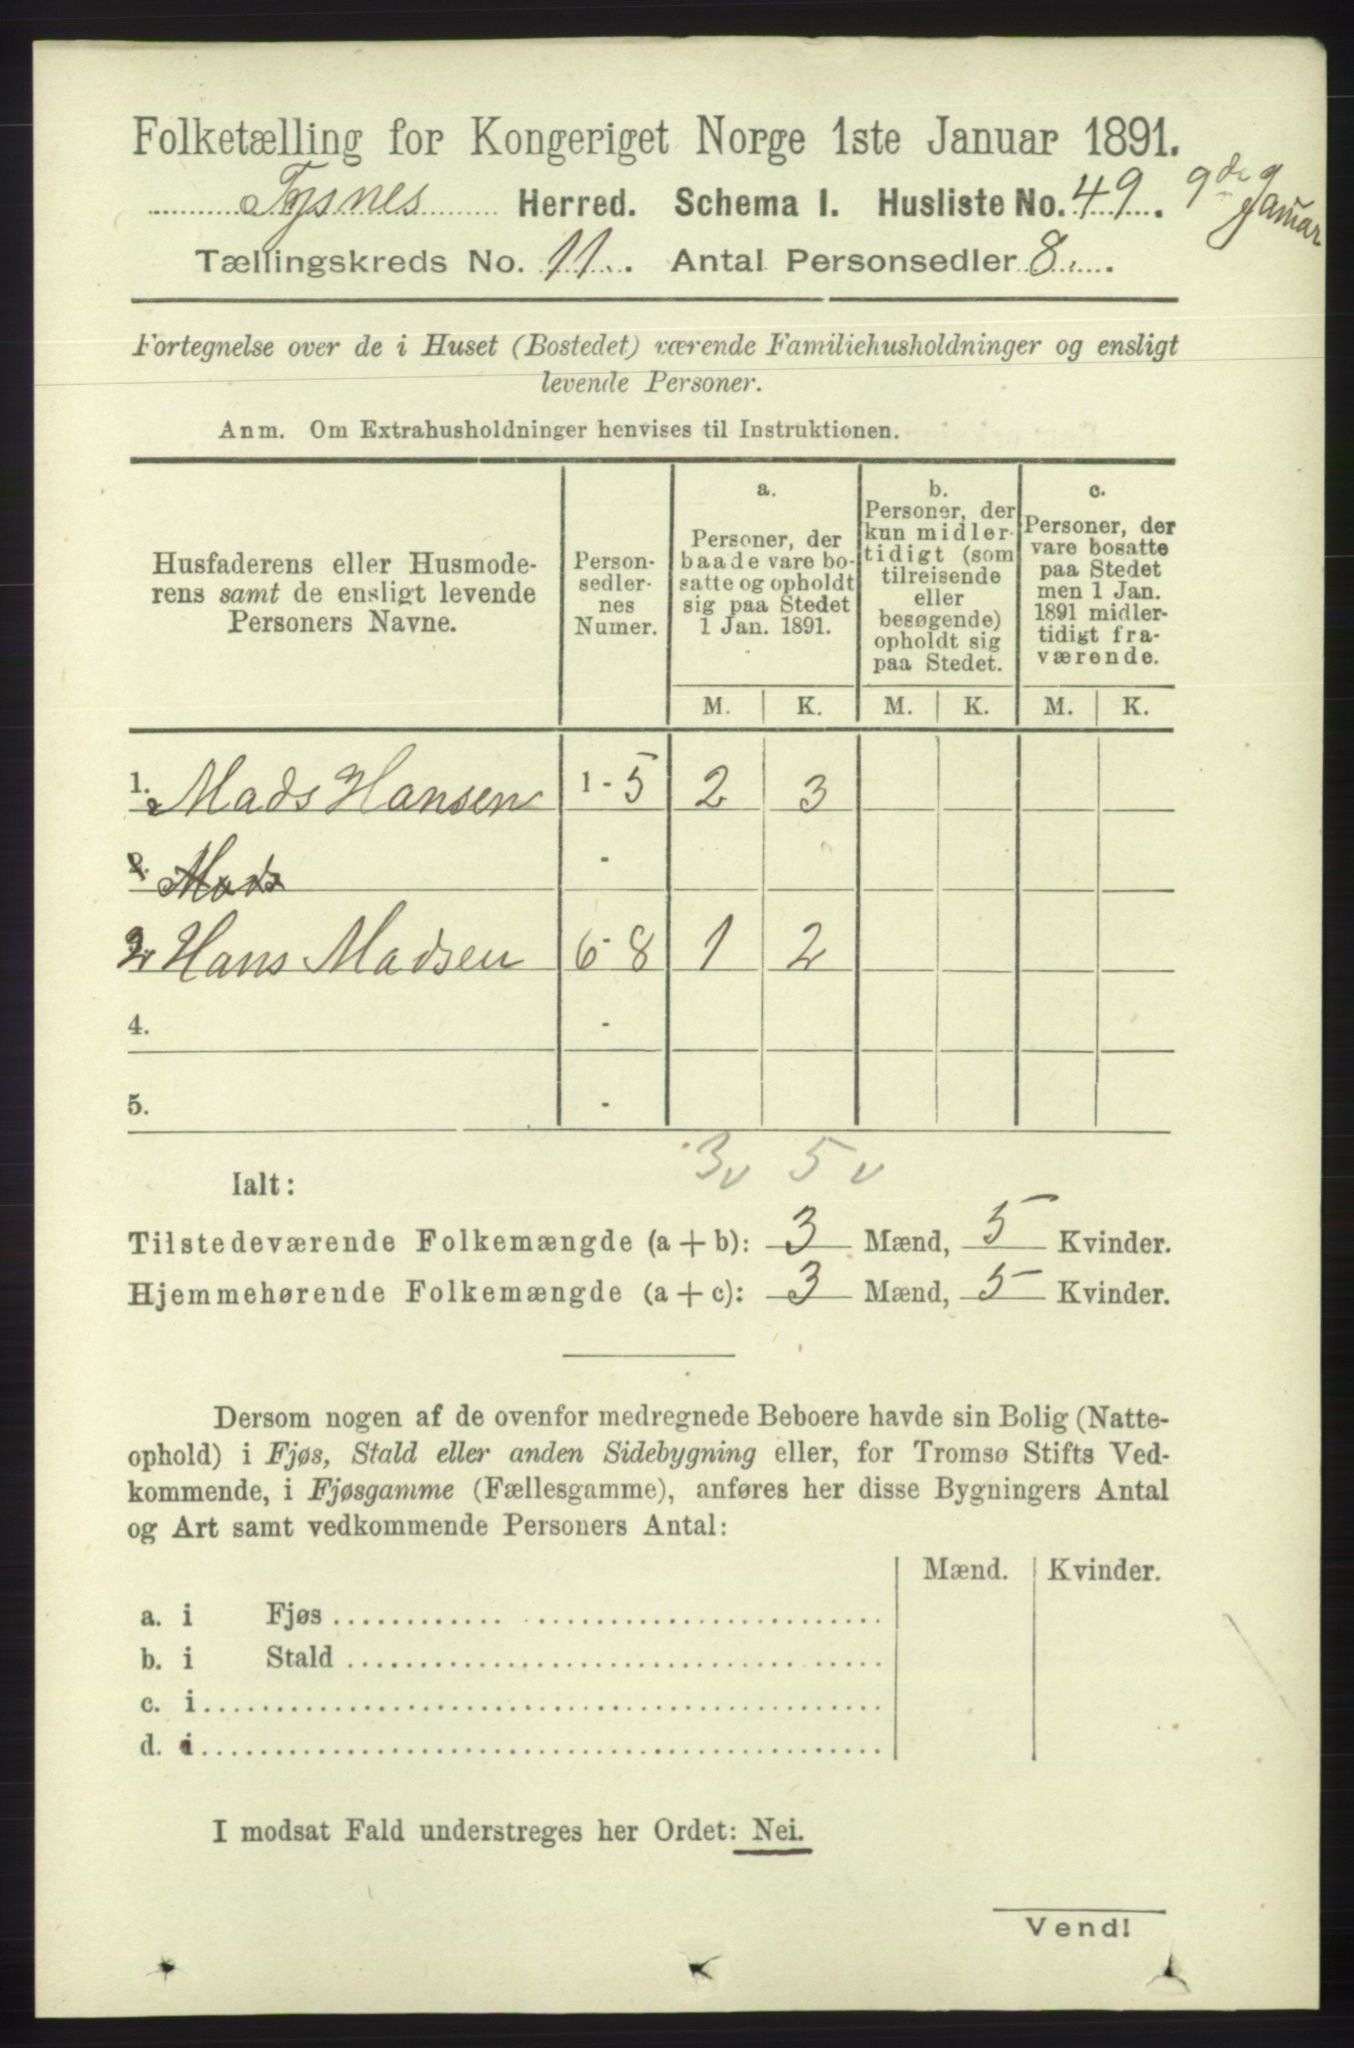 Folketælling for Kongeriget Norge 1ste Januar 1891.
Tysnes Herred. Schema I. Husliste No. 49. 9de Januar
Tællingskreds No. 11. Antal Personsedler 8.
Fortegnelse over de i Huset (Bostedet) værende Familiehusholdninger og ensligt
levende Personer.
Anm. Om Extrahusholdninger henvises til Instruktionen.
Husfaderens eller Husmode-
rens samt de ensligt levende
Personers Navne.
Person-
sedler-
nes
Numer.
a.
Personer, der
baade vare bo-
satte og opholdt
sig paa Stedet
1 Jan. 1891.
b.
Personer, der
kun midler-
tidigt (som
tilreisende
eller
besøgende)
opholdt sig
paa Stedet.
c.
Personer, der
vare bosatte
paa Stedet
men 1 Jan.
1891 midler-
tidigt fra-
værende.
M. K. M. K. M. K.
1. Mads Hansen 1 - 5 2 3
2. Mads -
2 Hans Madsen 6 - 8 1 2
4. -
5. -
3v 5v
Ialt:
Tilstedeværende Folkemængde (a + b): 3 Mænd, 5 Kvinder.
Hjemmehørende Folkemængde (a + c): 3 Mænd, 5 Kvinder.
Dersom nogen af de ovenfor medregnede Beboere havde sin Bolig (Natte-
ophold) i Fjøs, Stald eller anden Sidebygning eller, for Tromsø Stifts Ved-
kommende, i Fjøsgamme (Fællesgamme), anføres her disse Bygningers Antal
og Art samt vedkommende Personers Antal:
Mænd. Kvinder.
a. i Fjøs
b. i Stald
c. i
d. i
I modsat Fald understreges her Ordet: Nei.
Vend!